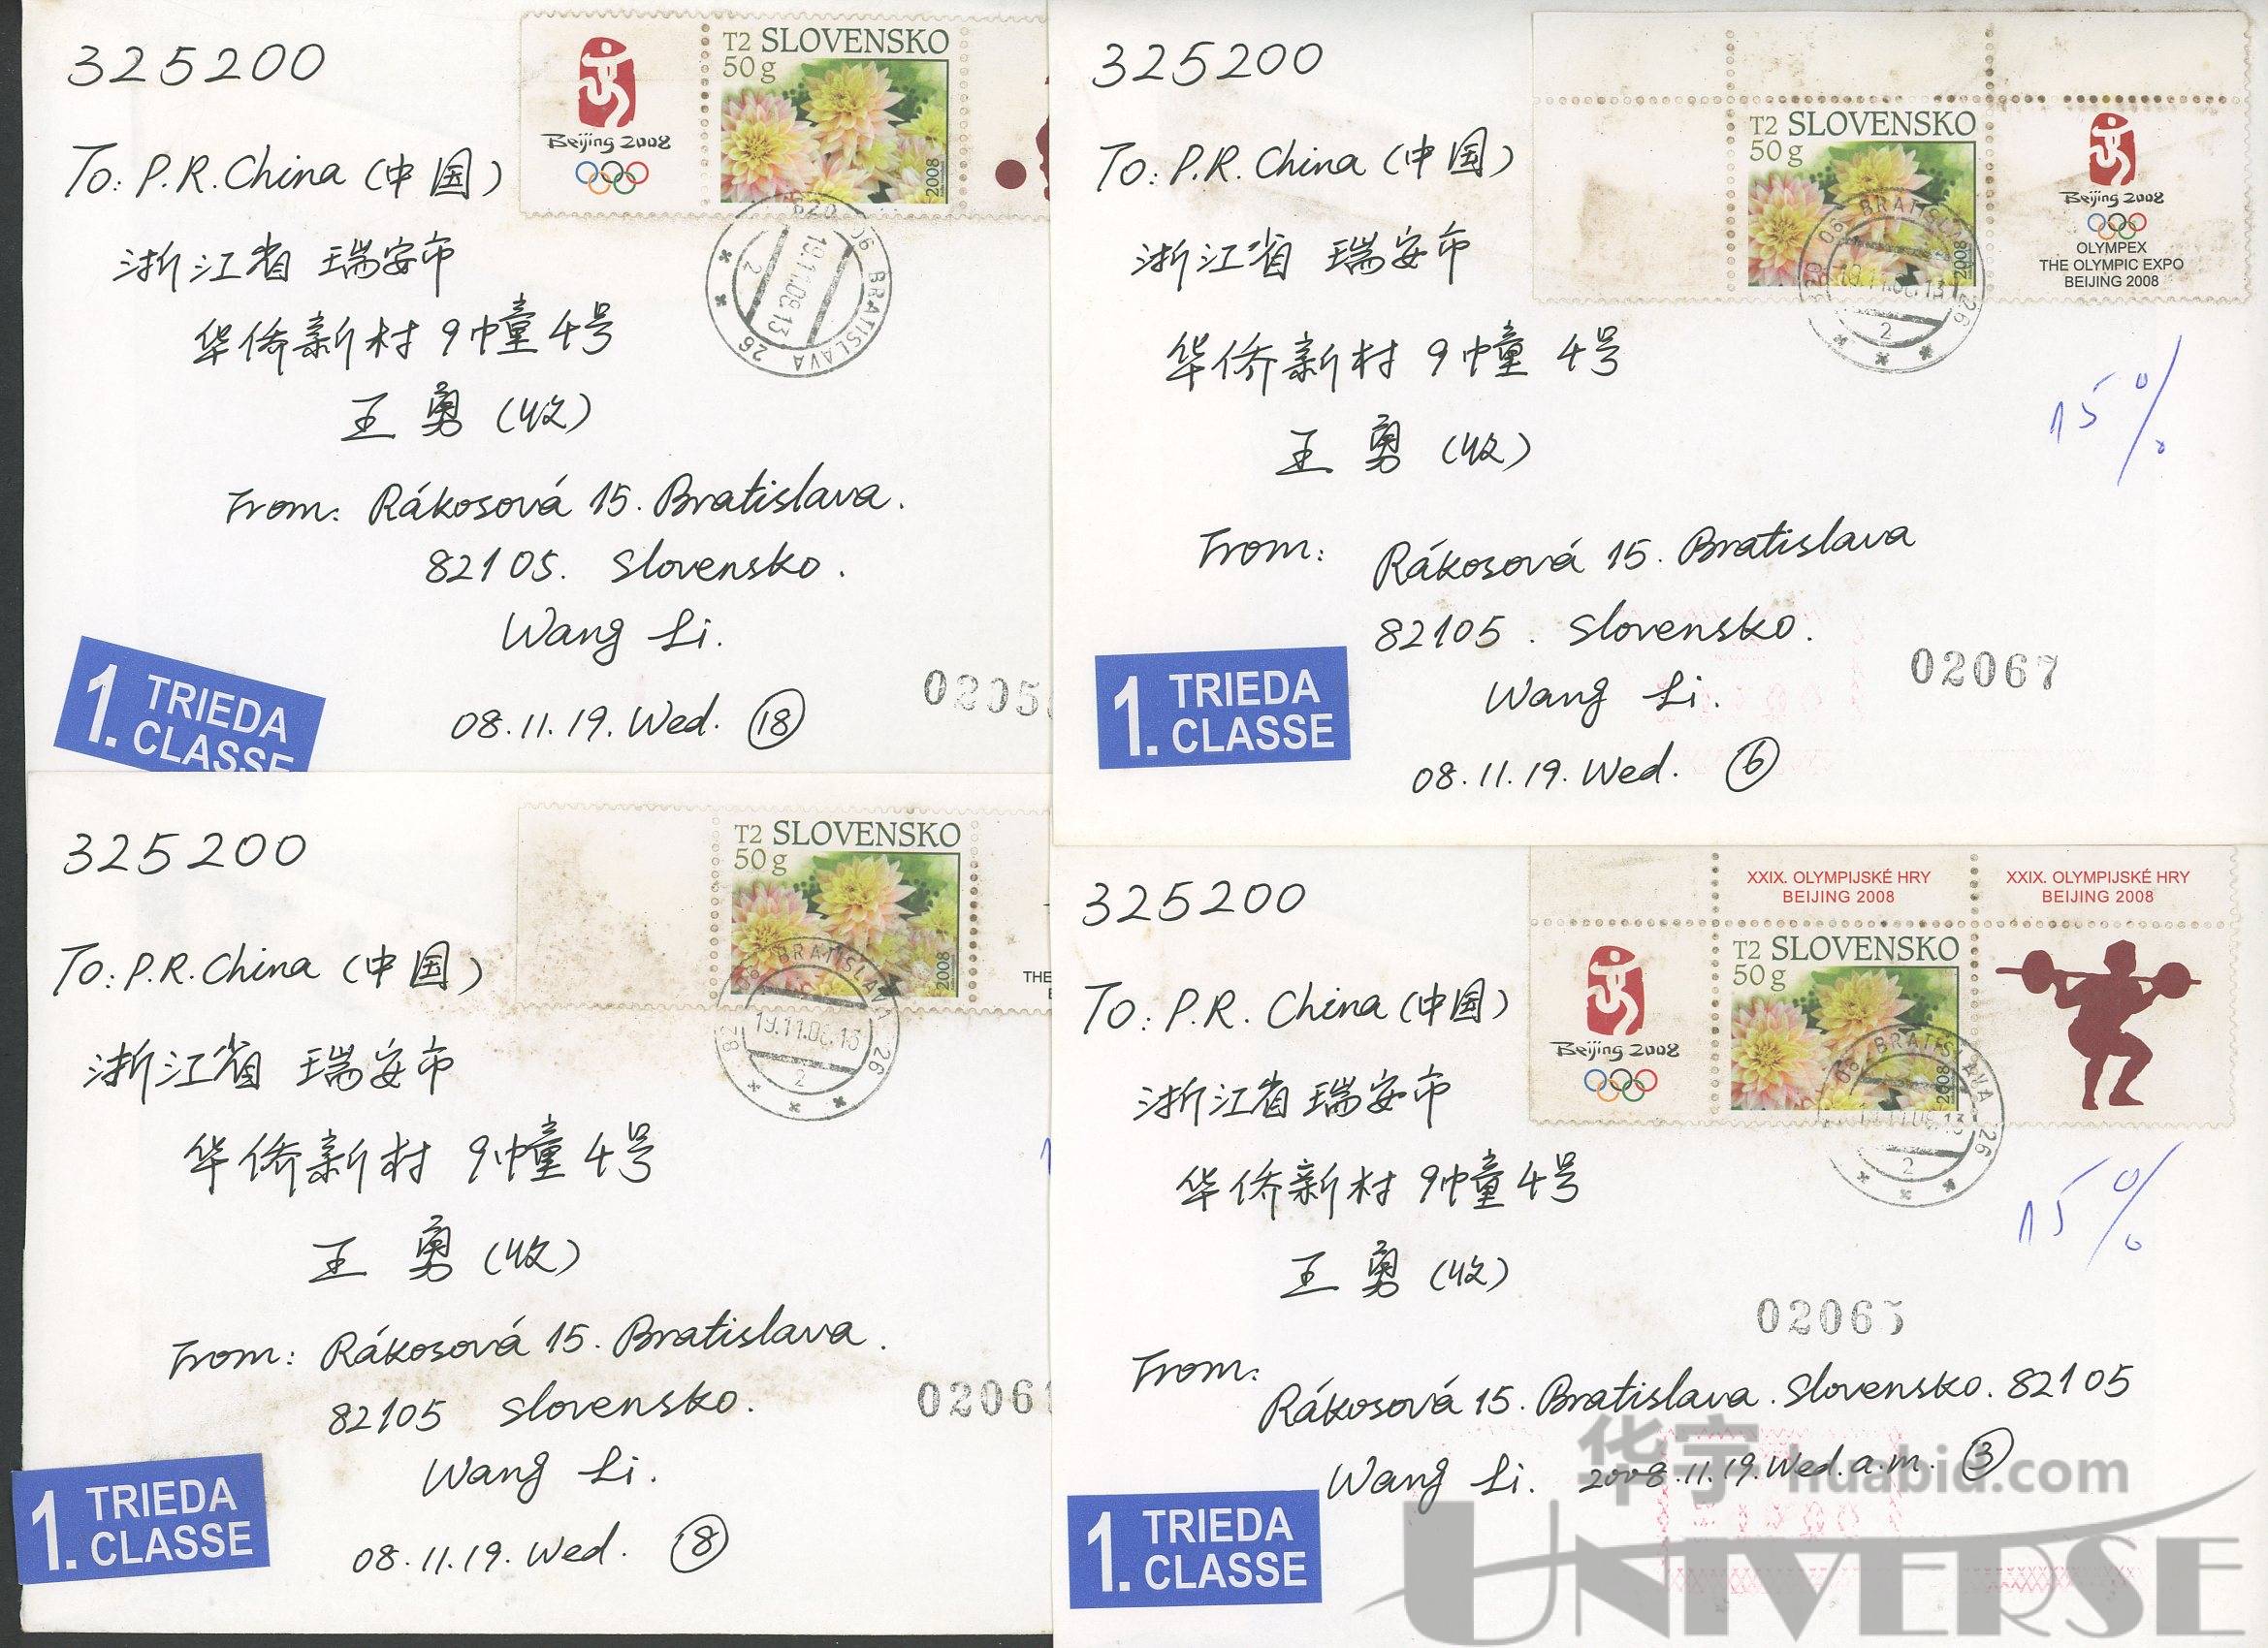 325200
To: P.R.China (中国)
浙江省 瑞安市
华侨新村 9幢 4号
王 勇 (收)
From: Rákosová 15. Bratislava.
82105. Slovensko.
Wang Li.
08.11.19. Wed. 18
Beijing 2008
T2 SLOVENSKO
50 g
2008
BRATISLAVA 26
19.11.08.13
2
1. TRIEDA
CLASSE
325200
To: P.R.China (中国)
浙江省 瑞安市
华侨新村 9幢 4号
王 勇 (收)
From: Rákosová 15. Bratislava
82105. Slovensko.
Wang Li.
08.11.19. Wed. 6
T2 SLOVENSKO
50 g
2008
Beijing 2008
OLYMPEX
THE OLYMPIC EXPO
BEIJING 2008
BRATISLAVA 26
2
15%
02067
1. TRIEDA
CLASSE
325200
To: P.R.China (中国)
浙江省 瑞安市
华侨新村 9幢 4号
王 勇 (收)
From: Rákosová 15. Bratislava.
82105 Slovensko.
Wang Li.
08.11.19. Wed. 8
T2 SLOVENSKO
50 g
2008
THE
BRATISLAVA 26
2
1. TRIEDA
CLASSE
325200
To: P.R. China (中国)
浙江省 瑞安市
华侨新村 9幢 4号
王 勇 (收)
From:
Rákosová 15. Bratislava. Slovensko. 82105
Wang Li. 2008.11.19. Wed. a.m. 3
XXIX. OLYMPIJSKÉ HRY
BEIJING 2008
XXIX. OLYMPIJSKÉ HRY
BEIJING 2008
Beijing 2008
T2 SLOVENSKO
50 g
2008
BRATISLAVA 26
2
15%
02065
1. TRIEDA
CLASSE
华宇 huabid.com
UNIVERSE